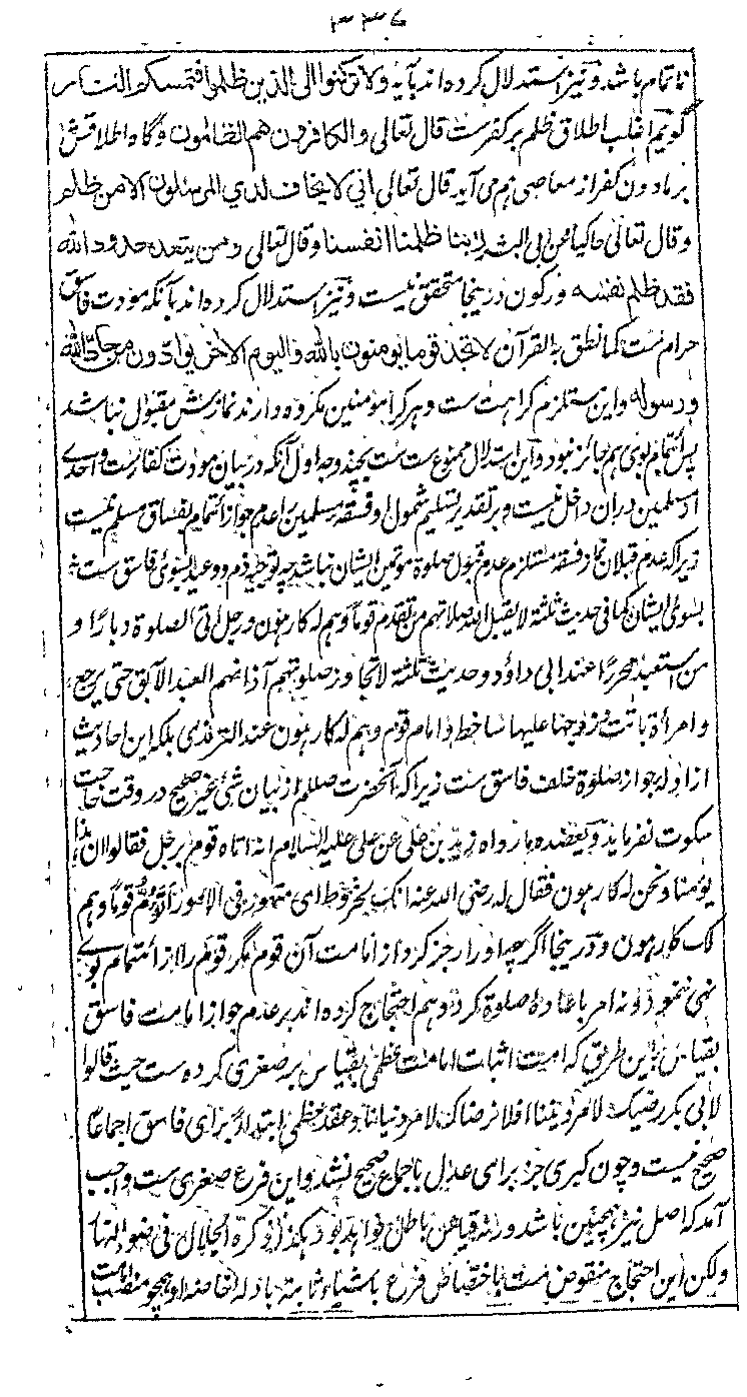 ٣٣٧
ناتمام باشد ونیز استدلال کرده‌اند بآیه ولا ترکنوا الی الذین ظلموا فتمسکم النار
گوئیم اغلب اطلاق ظلم بر کفرست قال تعالی والکافرون هم الظالمون وگاه اطلاقش
بر مادون کفر از معاصی هم می آید قال تعالی انی لا یخاف لدی المرسلون الا من ظلم
وقال تعالی حاکیا عن ابی البشر ربنا ظلمنا انفسنا وقال تعالی ومن یتعد حدود الله
فقد ظلم نفسه ورکون درینجا متحقق نیست ونیز استدلال کرده‌اند بآنکه مودت فاسق
حرام ست کما نطق به القرآن لا تجد قوما یؤمنون بالله والیوم الآخر یوادون من حاد الله
ورسوله واین مستلزم کراهت ست وهر کرا مؤمنین مکروه دارند نمازش مقبول نباشد
پس ائتمام بوی هم جائز نبود واین استدلال ممنوع ست بچند وجه اول آنکه در بیان مودت کفارست واحدے
از مسلمین دران داخل نیست وبر تقدیر تسلیم شمول او فسقه مسلمین را عدم جواز ائتمام بفساق مسلم نیست
زیراکه عدم قبول نماز فسقه مستلزم عدم قبول صلوة مؤتمین ایشان نباشد چه توجیه ذم ووعید بسوئ فاسق ست نه
بسوئ ایشان کما فی حدیث ثلثة لا یقبل الله صلاتهم من تقدم قوما وهم له کارهون ورجل اتی الصلوة دبارا و
من استعبد محررا عند ابی داؤد وحدیث ثلثة لا تجاوز صلوتهم آذانهم العبد الآبق حتی یرجع
وامرأة باتت وزوجها علیها ساخط وامام قوم وهم له کارهون عند الترمذی بلکه این احادیث
از ادله جواز صلوة خلف فاسق ست زیراکه آنحضرت صلعم از بیان شئ غیر صحیح در وقت حاجت
سکوت نفرماید ویعضده ما رواه زید بن علی عن علی علیه السلام انه اتاه قوم برجل فقالوا ان هذا
یؤمنا ونحن له کارهون فقال له رضی الله عنه انک لخروط ای متهور فی الامور اتؤم قوما وهم
لک کارهون ودرینجا اگرچه او را زجر کرد از امامت آن قوم مگر قوم را از ائتمام بوے
نهی ننمود ونه امر باعادهٔ صلوة کرد وهم احتجاج کرده‌اند بر عدم جواز امامت فاسق
بقیاس باین طریق که امت اثبات امامت عظمی بقیاس بر صغری کرده ست حیث قالوا
لابی بکر رضیک لامر دیننا افلا نرضاک لامر دنیانا وعقد عظمی ابتداء برای فاسق اجماعا
صحیح نیست وچون کبری جز برای عدل باجماع صحیح نشد واین فرع صغری ست واجب
آمد که اصل نیز همچنین باشد ورنه قیاس باطل خواهد بود هکذا ذکره الجلال فی ضوء النهار
ولکن این احتجاج منقوض ست باختصاص فرع باشیاء ثابته بادلهٔ خاصهٔ او همچو منصب امامت